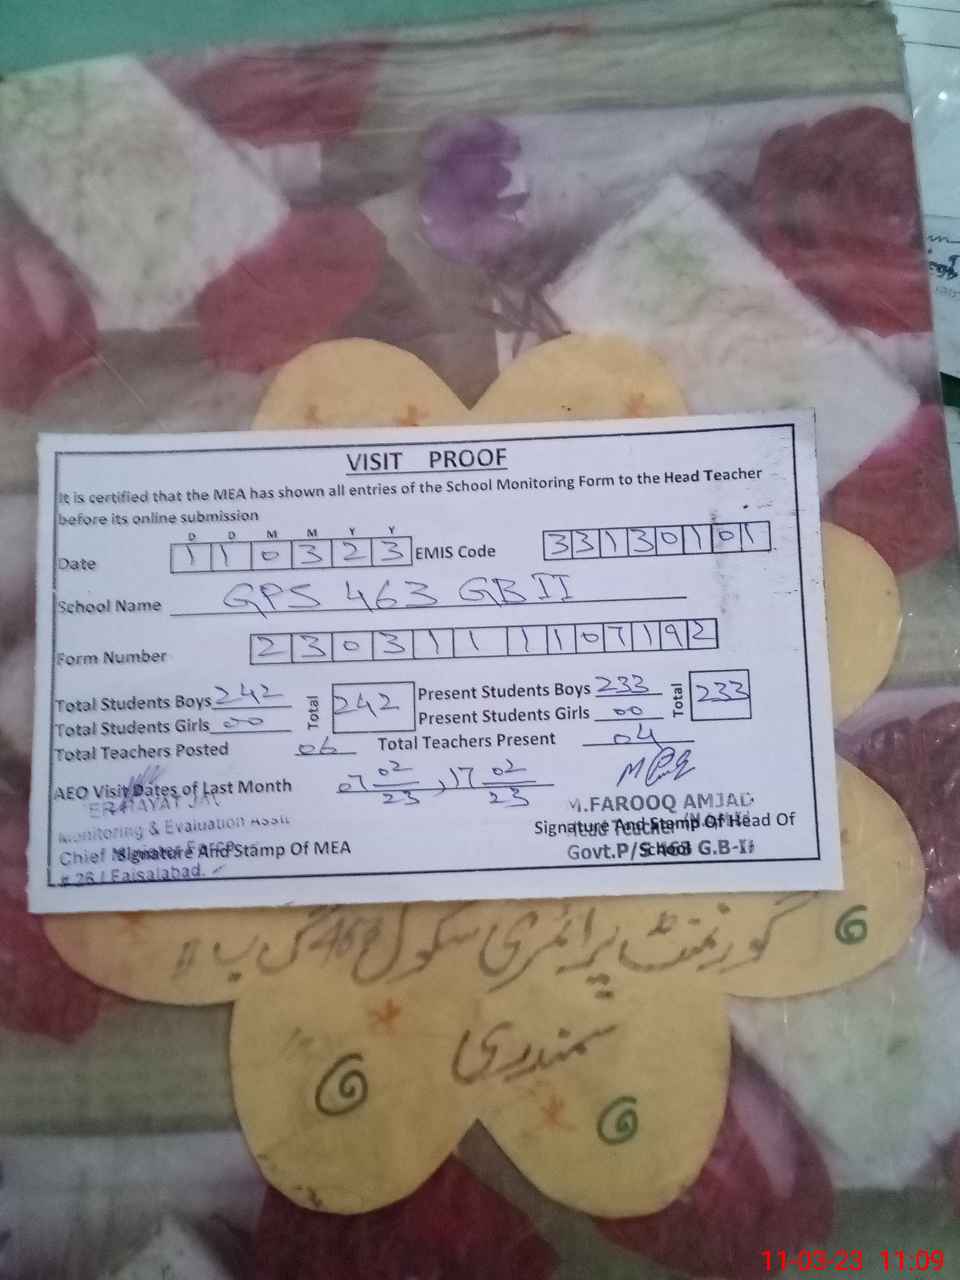 VISIT PROOF
It is certified that the MEA has shown all entries of the School Monitoring Form to the Head Teacher
before its online submission
D D M M Y Y
Date 110323 EMIS Code 33130101
School Name GPS 463 GB II
Form Number 2303111107192
Total Students Boys 242 Total 242 Present Students Boys 233 Total 233
Total Students Girls 00 Present Students Girls 00
Total Teachers Posted 06 Total Teachers Present 04
AEO Visit Dates of Last Month 07 02/23, 17 02/23
M.FAROOQ AMJAD
Monitoring & Evaluation Asstt
Head Teacher
Signature And Stamp Of Head Of
School
Chief
Signature And Stamp Of MEA
Govt.P/S 463 G.B-II
# 26 Faisalabad.
گورنمنٹ پرائمری سکول 463 گ ب II
سمندری
11-03-23 11:09